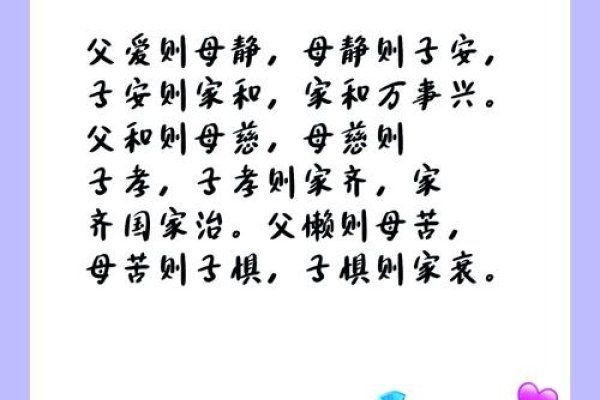 父爱则母静，母静则子安，
子安则家和，家和万事兴。
父和则母慈，母慈则
子孝，子孝则家齐，家
齐国家治。父懒则母苦，
母苦则子惧，子惧则家衰。